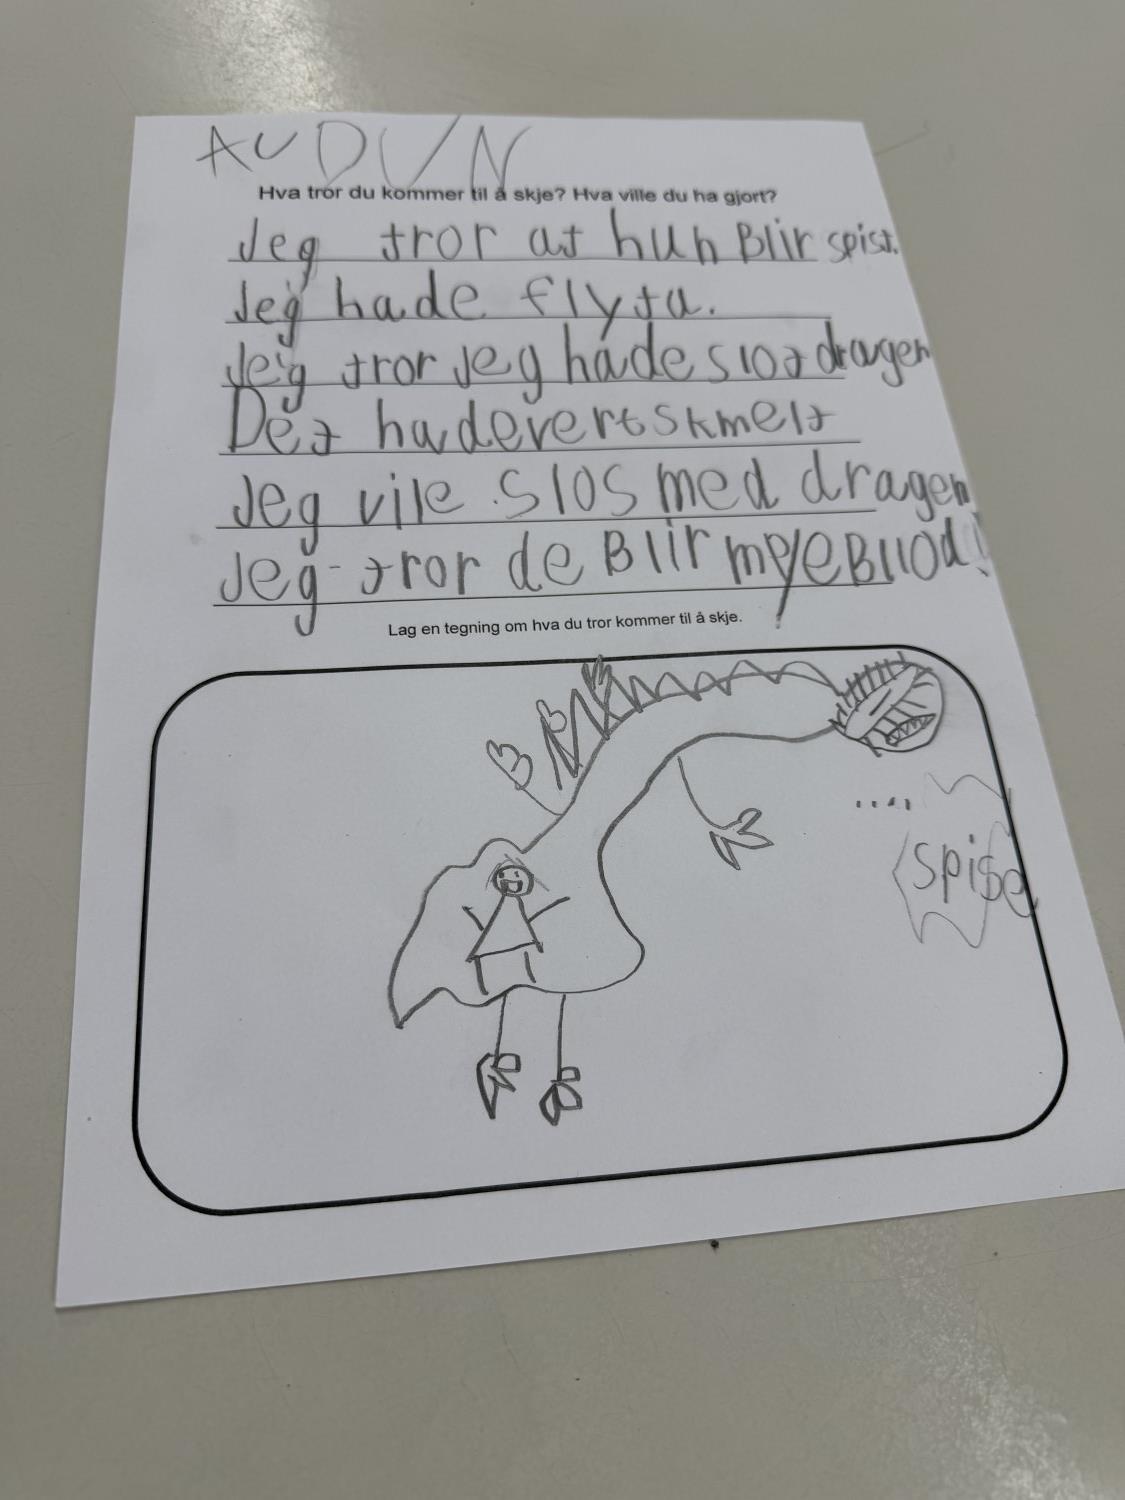 AUDUN
Hva tror du kommer til å skje? Hva ville du ha gjort?
Jeg tror at hun Blir spist.
Jeg hade flyta.
Jeg tror jeg hade slot dragen
Det hadevert skmelt
Jeg vile slos med dragen
Jeg tror de Blir myeBllod!
Lag en tegning om hva du tror kommer til å skje.
.....
spise